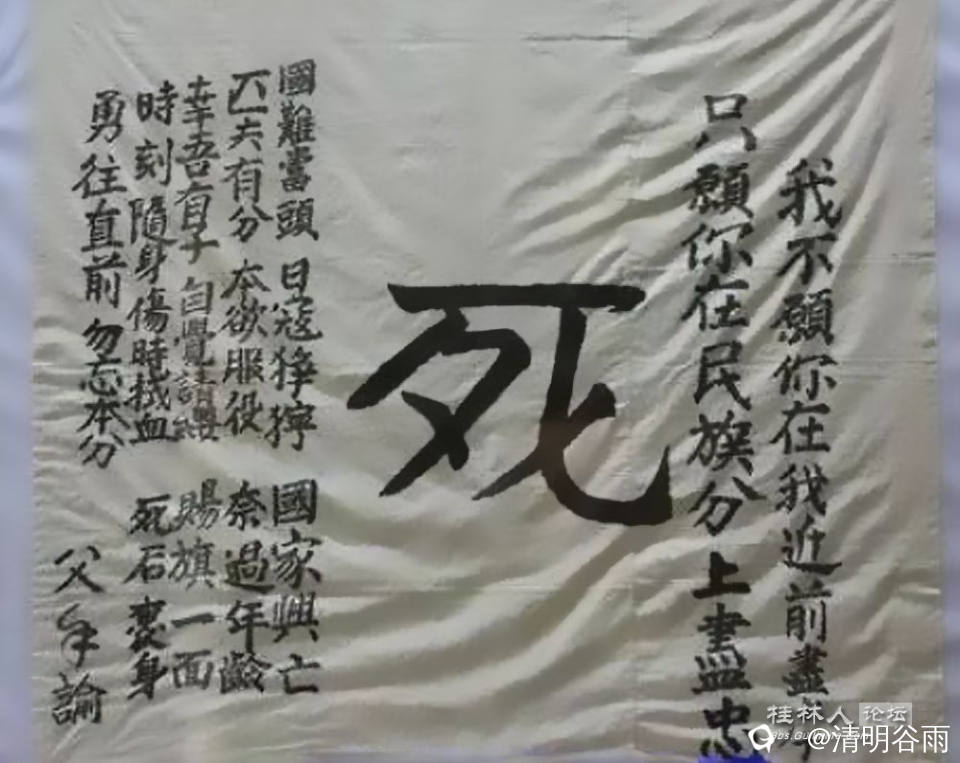 我不願你在我近前盡
只願你在民族分上盡忠
死
國難當頭 日寇猙獰 國家興亡
匹夫有分 本欲服役 奈過年齡
幸吾有子 自覺請纓 賜旗一面
時刻隨身 傷時拭血 死后裹身
勇往直前 勿忘本分
父手諭
桂林人论坛
@清明谷雨